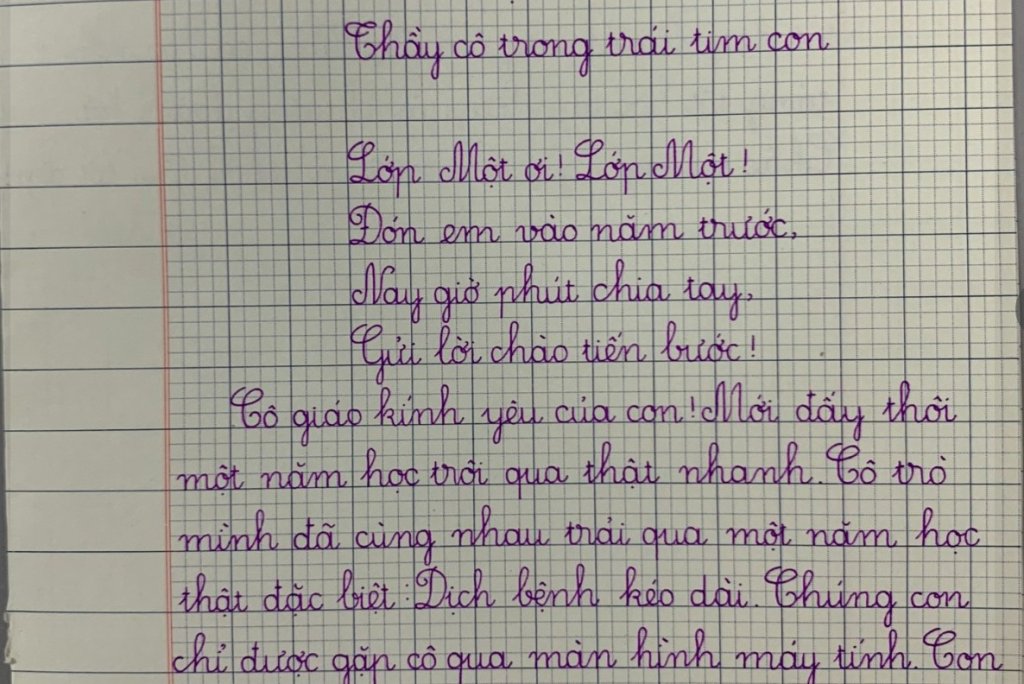 Thầy cô trong trái tim con
Lớp Một ơi! Lớp Một!
Đón em vào năm trước,
Nay giờ phút chia tay,
Gửi lời chào tiến bước!
Cô giáo kính yêu của con! Mới đấy thôi
một năm học trôi qua thật nhanh. Cô trò
mình đã cùng nhau trải qua một năm học
thật đặc biệt: Dịch bệnh kéo dài. Chúng con
chỉ được gặp cô qua màn hình máy tính. Con